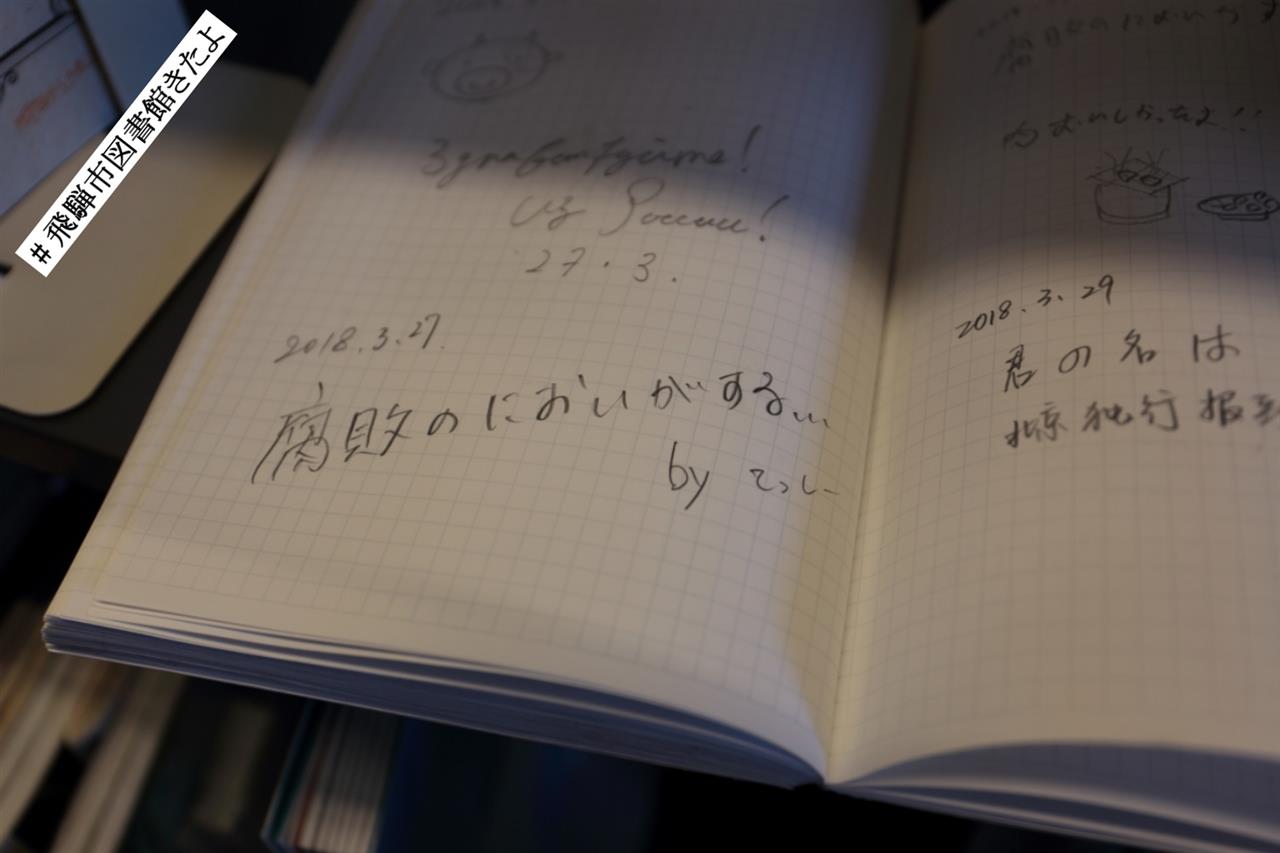 #飛騨市図書館きたよ
Здравствуйте!
Из России!
27.3.
2018.3.27.
腐敗のにおいがする...
by てっしー
肉おいしかったよ!!
2018.3.29
君の名は
北京